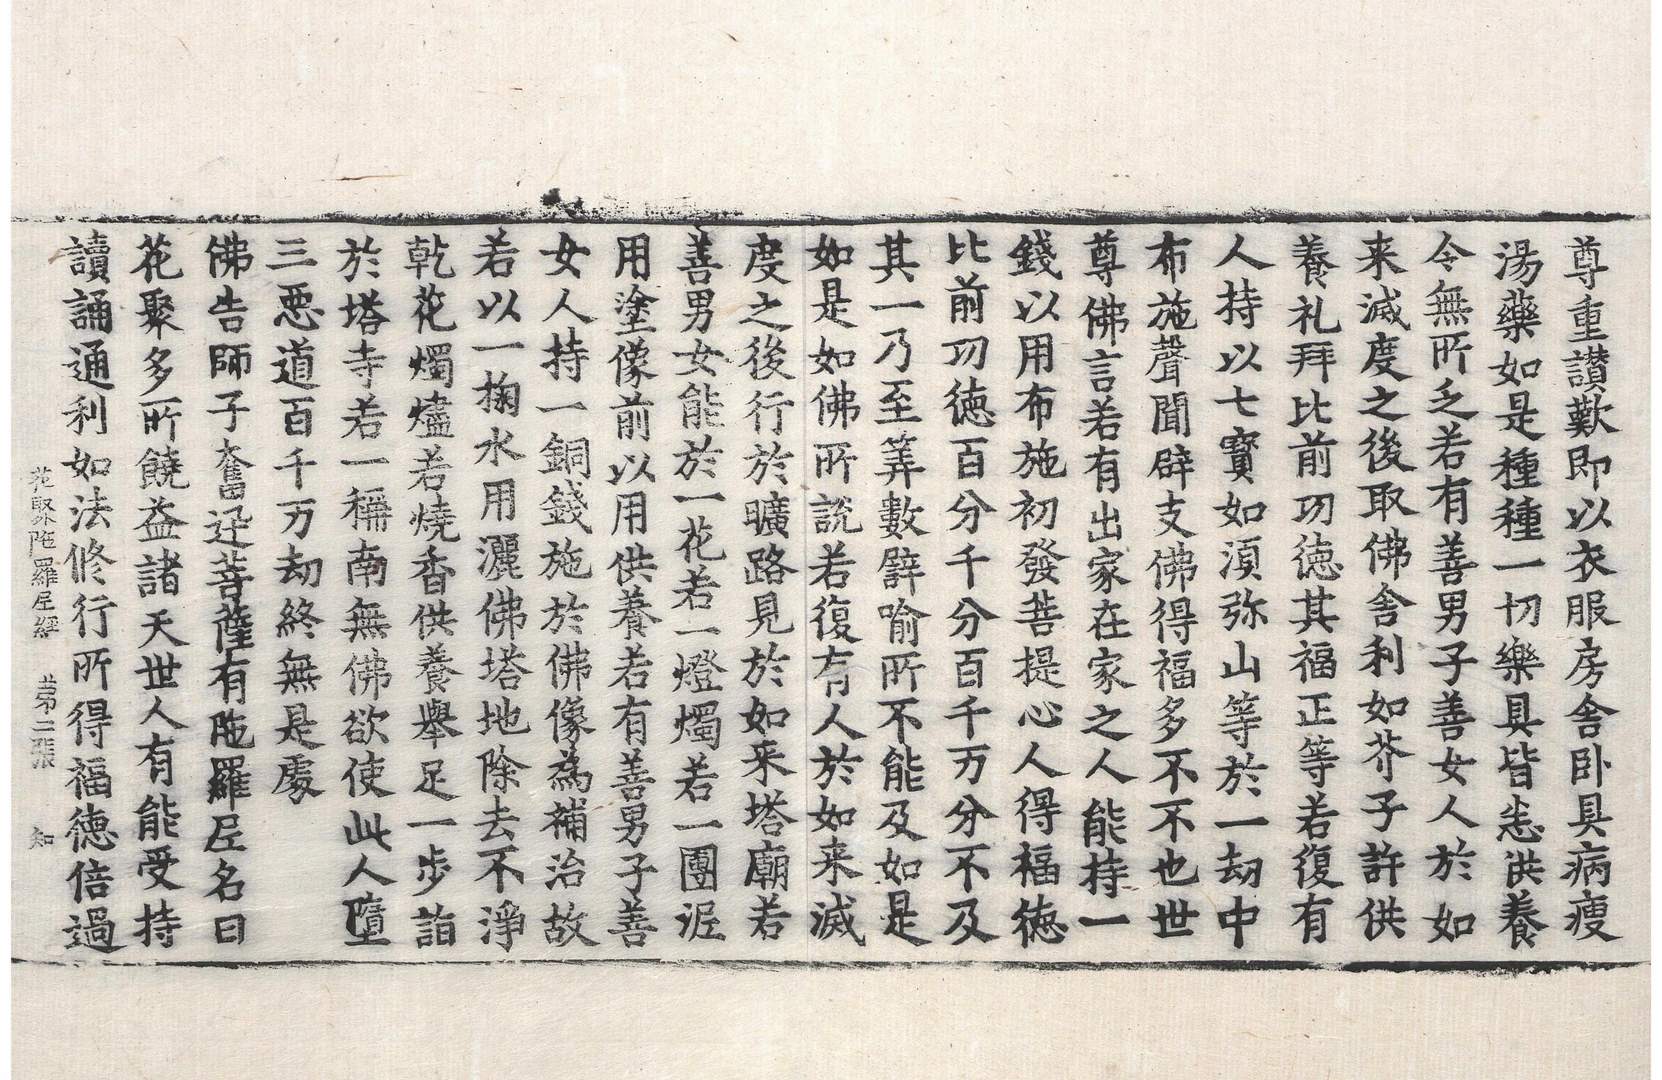 尊重讃歎即以衣服房舎卧具病瘦
湯藥如是種種一切樂具皆悉供養
令無所乏若有善男子善女人於如
来滅度之後取佛舎利如芥子許供
養礼拜比前功德其福正等若復有
人持以七寳如湏弥山等於一劫中
布施聲聞辟支佛得福多不不也世
尊佛言若有出家在家之人能持一
錢以用布施初發菩提心人得福德
比前功德百分千分百千万分不及
其一乃至筭數譬喻所不能及如是
如是如佛所說若復有人於如来滅
度之後行於曠路見於如来塔廟若
善男女能於一花若一燈燭若一團泥
用塗像前以用供養若有善男子善
女人持一銅錢施於佛像為補治故
若以一掬水用灑佛塔地除去不淨
乾花燭燼若燒香供養舉足一步詣
於塔寺若一稱南無佛欲使此人墮
三悪道百千万劫終無是處
佛告師子奮迅菩薩有陁羅尼名曰
花聚多所饒益諸天世人有能受持
讀誦通利如法修行所得福德倍過
花聚陁羅尼經 第二張 知